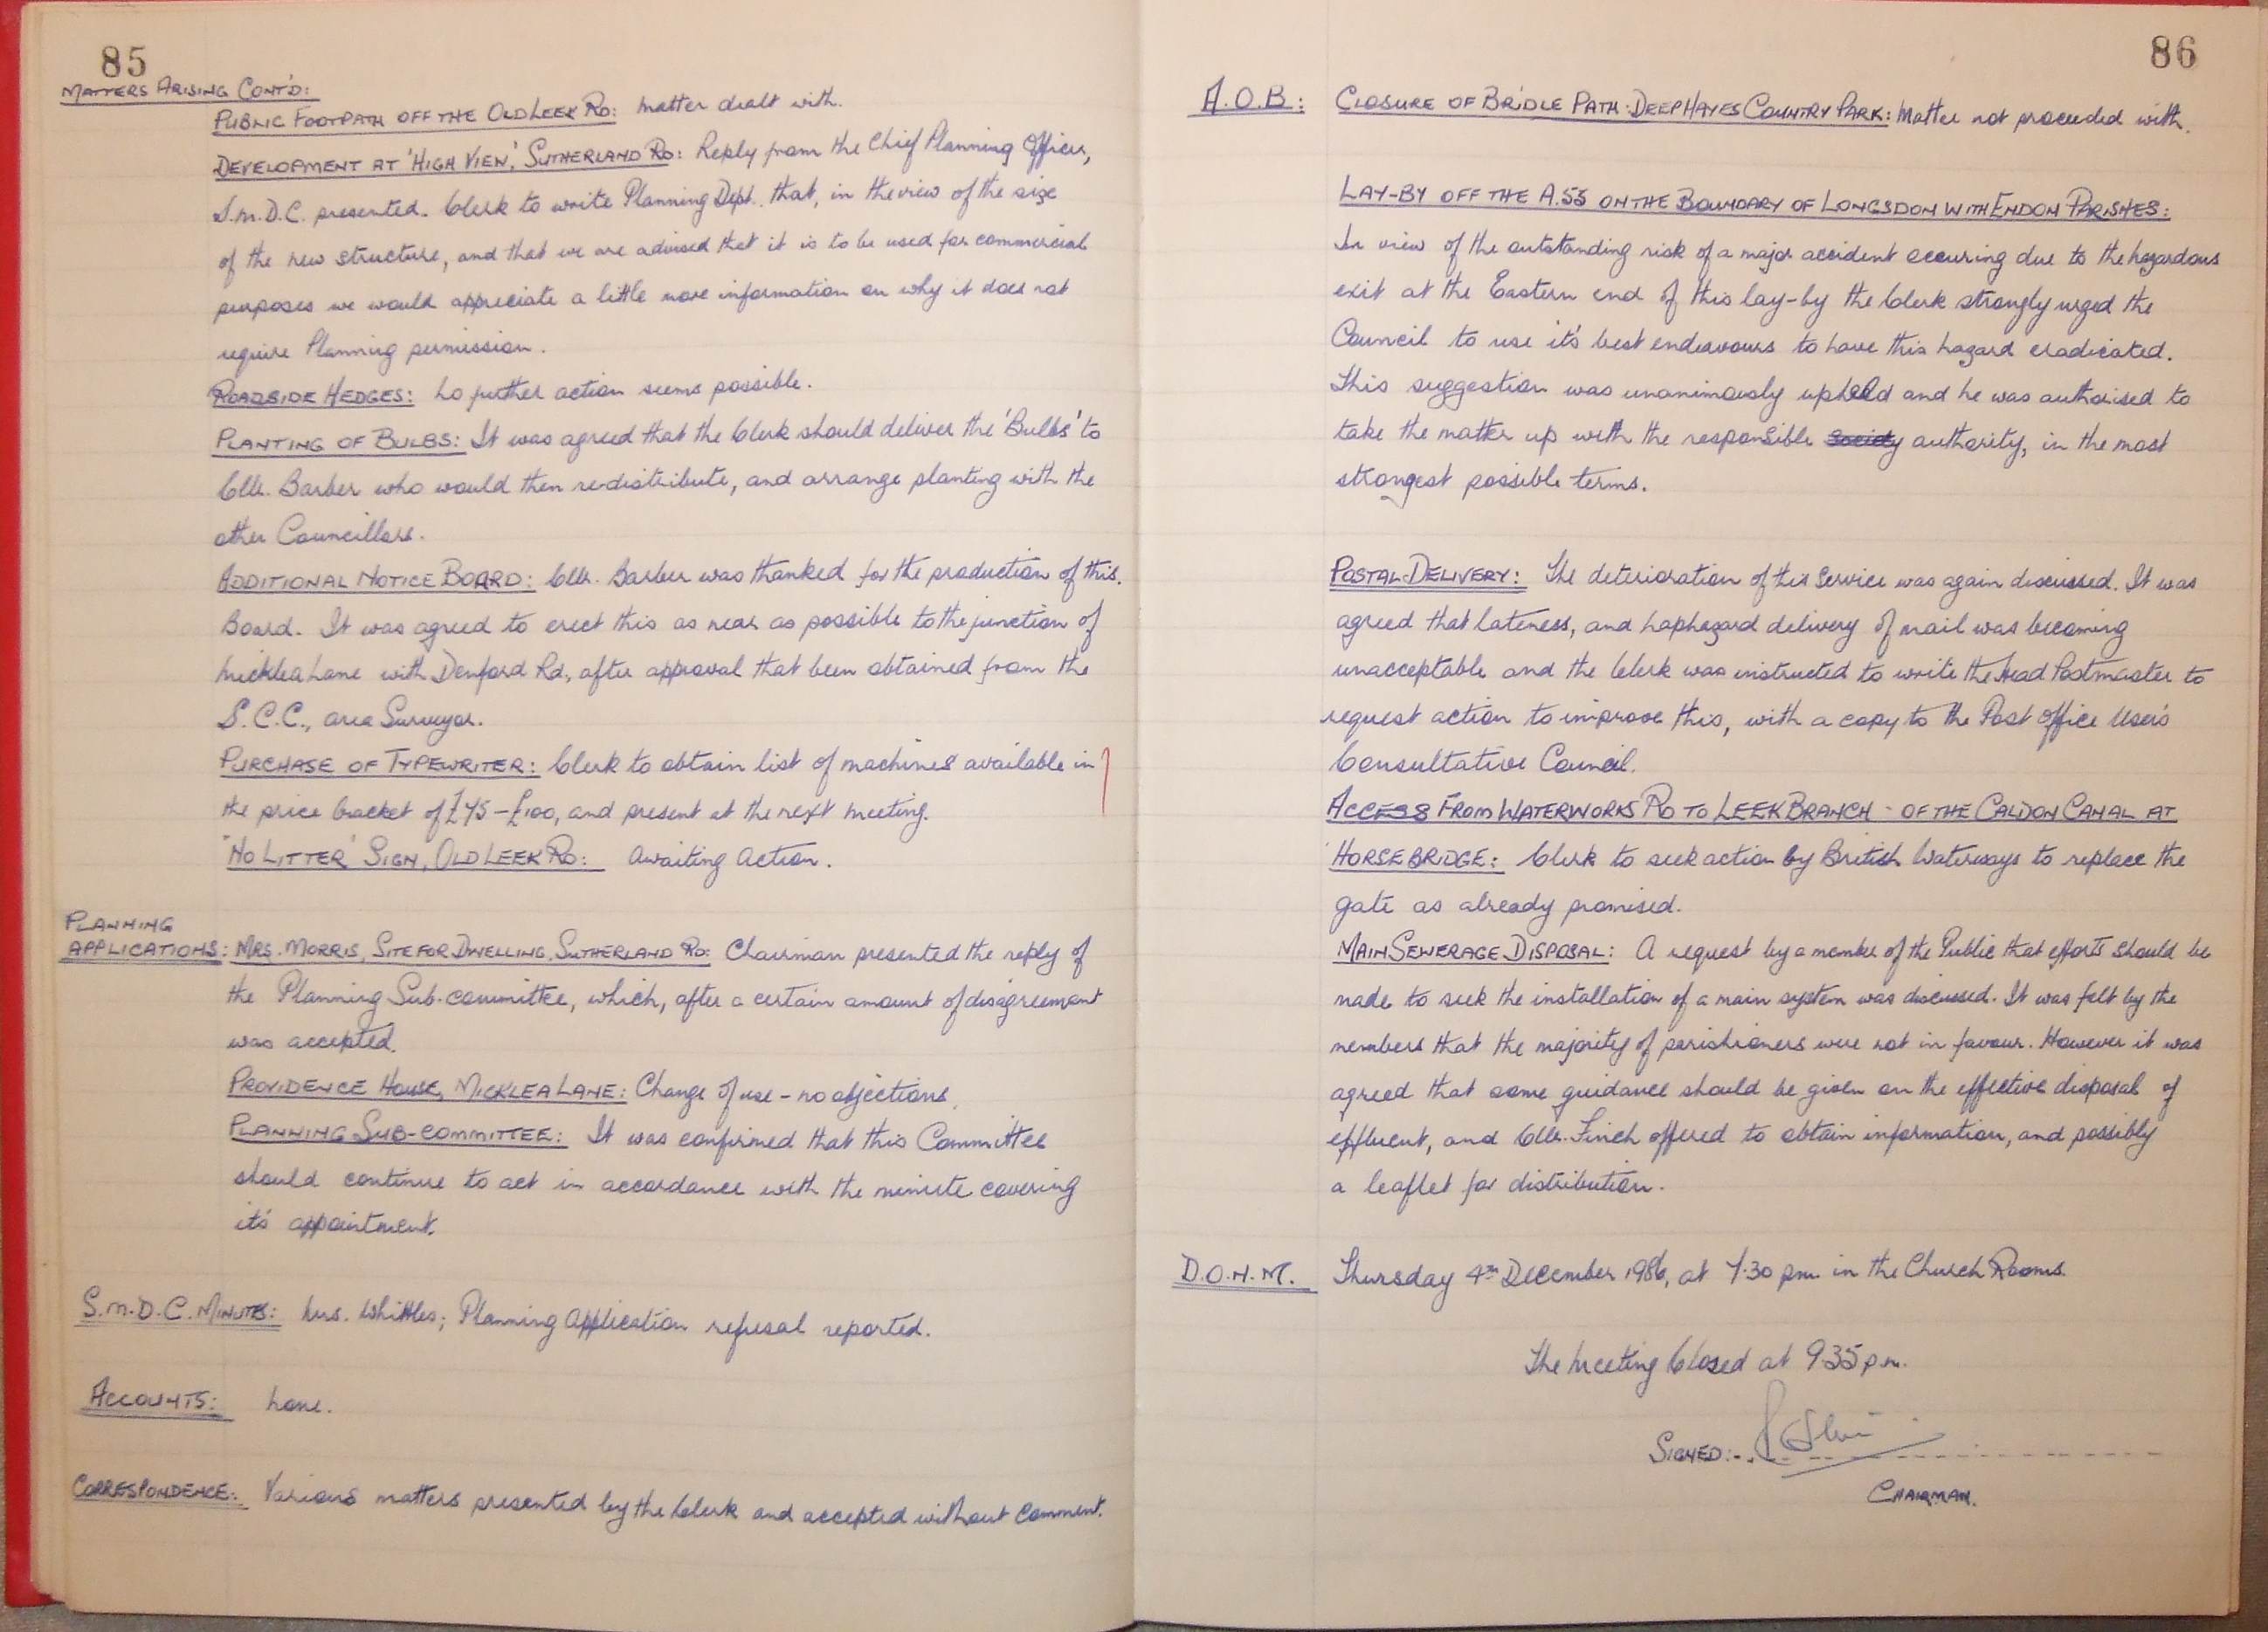 85
MATTERS ARISING CONT'D:
PUBLIC FOOTPATH OFF THE OLD LEEK RD: Matter dealt with.
DEVELOPMENT AT 'HIGH VIEW,' SUTHERLAND RD: Reply from the Chief Planning Officer,
S.M.D.C. presented. Clerk to write Planning Dept. that, in the view of the size
of the new structure, and that we are advised that it is to be used for commercial
purposes we would appreciate a little more information on why it does not
require Planning permission.
ROADSIDE HEDGES: No further action seems possible.
PLANTING OF BULBS: It was agreed that the Clerk should deliver the 'Bulbs' to
Cllr. Barber who would then re-distribute, and arrange planting with the
other Councillors.
ADDITIONAL NOTICE BOARD: Cllr. Barber was thanked for the production of this.
Board. It was agreed to erect this as near as possible to the junction of
Micklea Lane with Denford Rd., after approval that been obtained from the
S.C.C., area Surveyor.
PURCHASE OF TYPEWRITER: Clerk to obtain list of machines available in
the price bracket of £75-£100, and present at the next meeting.
"NO LITTER" SIGN, OLD LEEK RD: Awaiting Action.
PLANNING
APPLICATIONS: MRS. MORRIS, SITE FOR DWELLING, SUTHERLAND RD: Chairman presented the reply of
the Planning Sub-committee, which, after a certain amount of disagreement
was accepted.
PROVIDENCE HOUSE, MICKLEA LANE: Change of use - no objections.
PLANNING SUB-COMMITTEE: It was confirmed that this Committee
should continue to act in accordance with the minute covering
it's appointment.
S.M.D.C. MINUTES: Mrs. Whittles; Planning Application refusal reported.
ACCOUNTS: None.
CORRESPONDENCE: Various matters presented by the Clerk and accepted without comment.
86
A.O.B: CLOSURE OF BRIDLE PATH: DEEP HAYES COUNTRY PARK: Matter not proceeded with.
LAY-BY OFF THE A.53 ON THE BOUNDARY OF LONGSDON WITH ENDON PARISHES:
In view of the outstanding risk of a major accident occuring due to the hazardous
exit at the Eastern end of this lay-by the Clerk strongly urged the
Council to use it's best endeavours to have this hazard eradicated.
This suggestion was unanimously upheld and he was authorised to
take the matter up with the responsible society authority, in the most
strongest possible terms.
POSTAL DELIVERY: The deterioration of this Service was again discussed. It was
agreed that lateness, and haphazard delivery of mail was becoming
unacceptable and the Clerk was instructed to write the Head Postmaster to
request action to improve this, with a copy to the Post Office User's
Consultative Council.
ACCESS FROM WATERWORKS RD TO LEEK BRANCH - OF THE CALDON CANAL AT
HORSEBRIDGE: Clerk to seek action by British Waterways to replace the
gate as already promised.
MAIN SEWERAGE DISPOSAL: A request by a member of the Public that efforts should be
made to seek the installation of a main system was discussed. It was felt by the
members that the majority of parishioners were not in favour. However it was
agreed that some guidance should be given on the effective disposal of
effluent, and Cllr. Finch offered to obtain information, and possibly
a leaflet for distribution.
D.O.N.M. Thursday 4th December 1986, at 7.30 pm. in the Church Rooms.
The Meeting Closed at 9.35 p.m.
SIGNED:-
CHAIRMAN.